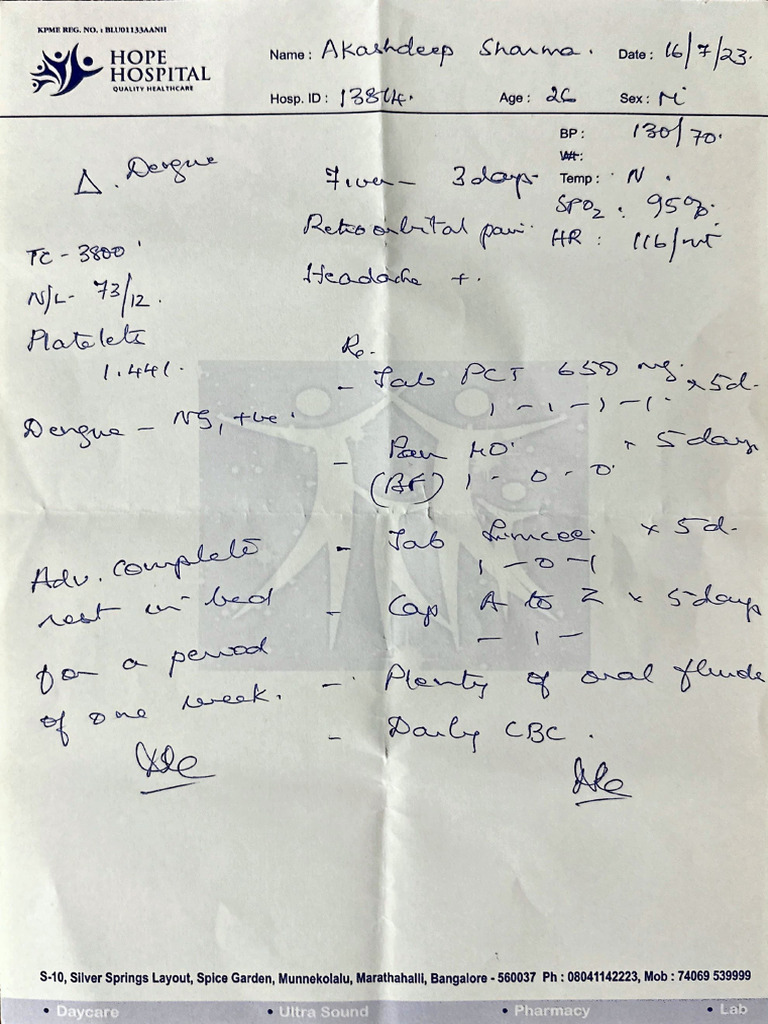 KPME REG. NO. : BLU01133AANH
HOPE
HOSPITAL
QUALITY HEALTHCARE
Name : Akashdeep Sharma . Date : 16/7/23.
Hosp. ID : 13814. Age : 26 Sex : M
BP : 130/70.
Wt :
Temp : N .
SPO2 : 95%.
HR : 116/mt
Δ . Dengue
TC - 3800
N/L - 73/12 .
Platelets
1.44 l.
Dengue - NS1 +ve .
Adv. complete
rest in bed
for a period
of one week.
Fever - 3 days
Retroorbital pain .
Headache +.
Rx.
- Tab PCT 650 mg. x 5d.
1 - 1 - 1 - 1.
- Pan 40. x 5 days
(BF) 1 - 0 - 0
- Tab Limcee. x 5d.
1 - 0 - 1
- Cap A to Z x 5 days
- 1 -
- Plenty of oral fluids
- Daily CBC .
S-10, Silver Springs Layout, Spice Garden, Munnekolalu, Marathahalli, Bangalore - 560037 Ph : 08041142223, Mob : 74069 539999
• Daycare • Ultra Sound • Pharmacy • Lab